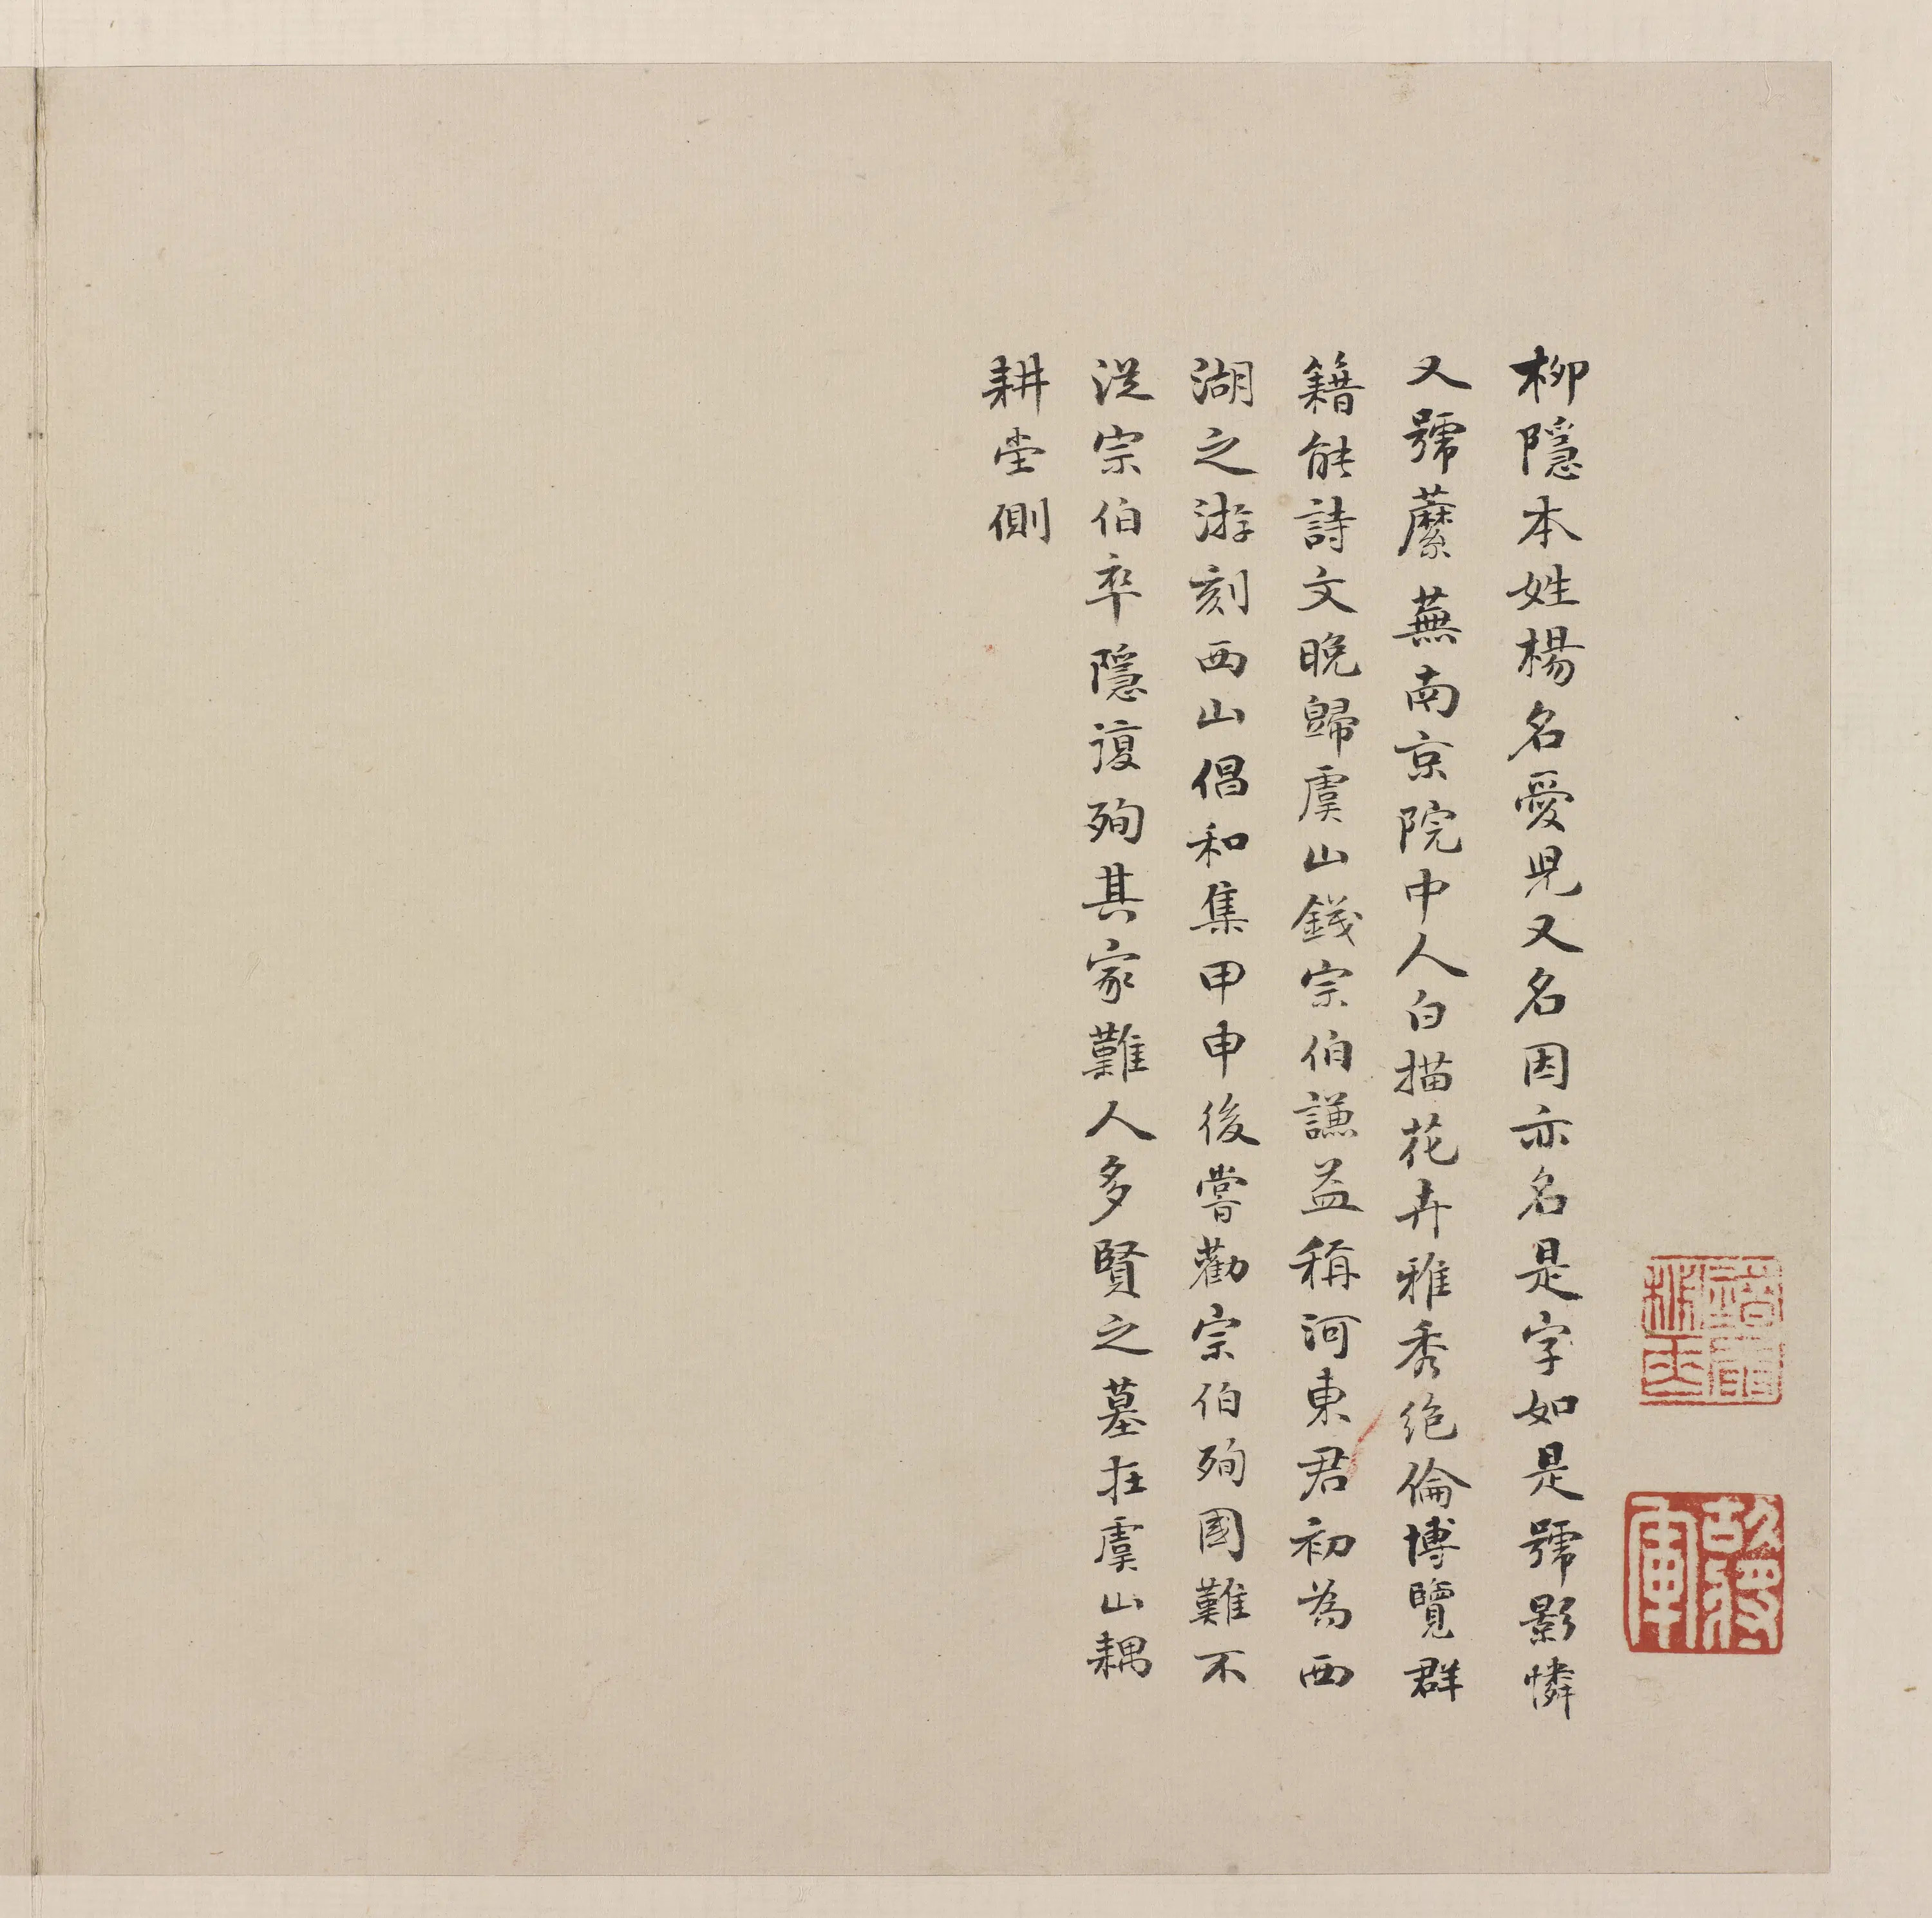 柳隱本姓楊名愛児又名因亦名是字如是號影憐
又號蘼蕪南京院中人白描花卉雅秀絶倫博覽群
籍能詩文晚歸虞山錢宗伯謙益稱河東君初為西
湖之游刻西山倡和集甲申後嘗勸宗伯殉國難不
從宗伯卒隱復殉其家難人多賢之墓在虞山耦
耕堂側